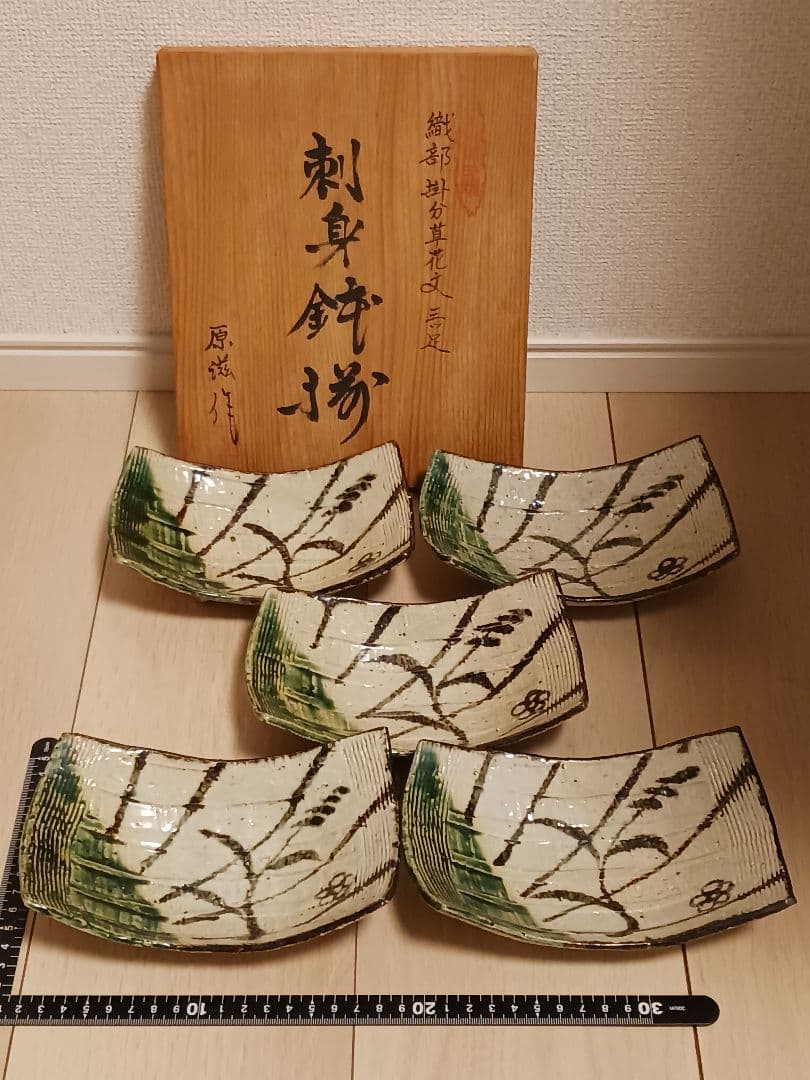 織部掛分草花文三足
刺身鉢揃
原滋作
10 20 30